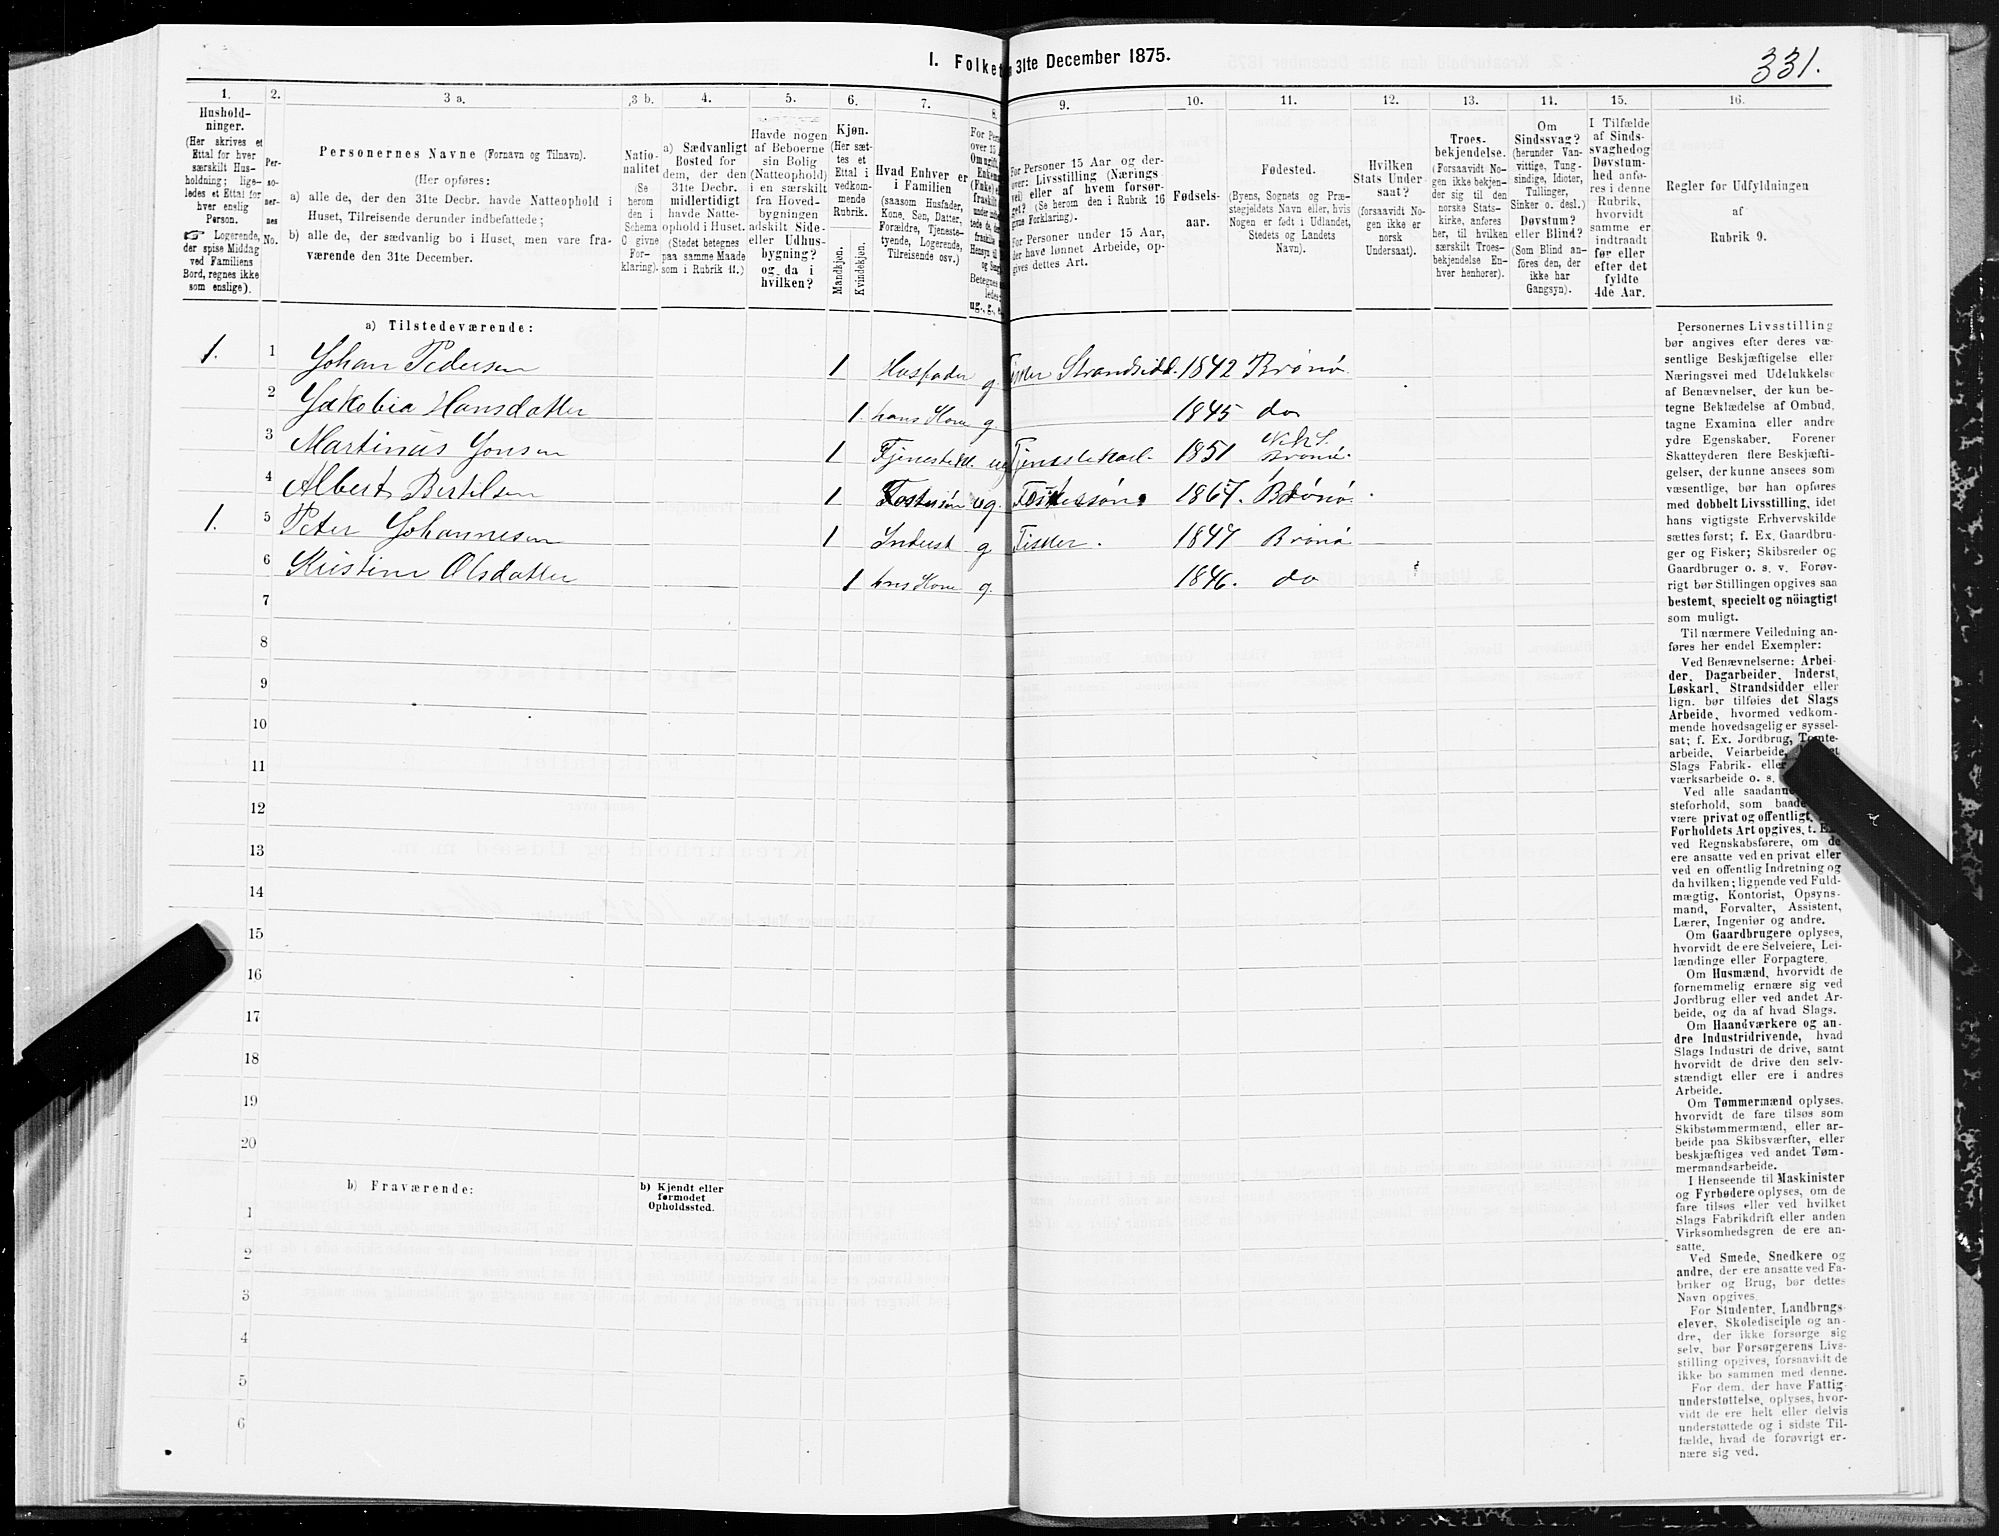 1. Folket
31te December 1875.
331.
1.
Hushold-
ninger.
(Her skrives et
Ettal for hver
særskilt Hus-
holdning; lige-
ledes et Ettal for
hver enslig
Person.
☞ Logerende,
der spise Middag
ved Familiens
Bord, regnes ikke
som enslige).
2.
Per-
so-
ner-
nes
No.
3 a.
Personernes Navne (Fornavn og Tilnavn).
(Her opføres:
a) alle de, der den 31te Decbr. havde Natteophold i
Huset, Tilreisende derunder indbefattede;
b) alle de, der sædvanlig bo i Huset, men vare fra-
værende den 31te December.
3 b.
Natio-
nalitet
(Se
herom
den i
Schema
C givne
For-
klaring).
4.
a) Sædvanligt
Bosted for
dem, der den
31te Decbr.
midlertidigt
havde Natte-
ophold i Huset.
(Stedet betegnes
paa samme Maade
som i Rubrik 11.)
5.
Havde nogen
af Beboerne
sin Bolig
(Natteophold)
i en særskilt
fra Hoved-
bygningen
adskilt Side-
eller Udhus-
bygning?
og da i
hvilken?
6.
Kjøn.
(Her sæt-
tes et
Ettal i
vedkom-
mende
Rubrik.
Mandkjøn.
Kvindekjøn.
7.
Hvad Enhver er
i Familien
(saasom Husfader,
Kone, Søn, Datter,
Forældre, Tjeneste-
tyende, Logerende,
Tilreisende osv.)
8.
ug., g., e.
9.
For Personer 15 Aar og der-
over: Livsstilling (Nærings
vei) eller af hvem forsør-
get? (Se herom den i Rubrik 16
givne Forklaring).
For Personer under 15 Aar,
der have lønnet Arbeide, op-
gives dettes Art.
10.
Fødsels-
aar.
11.
Fødested.
(Byens, Sognets og Præ-
stegjeldets Navn eller, hvis
Nogen er født i Udlandet,
Stedets og Landets
Navn).
12.
Hvilken
Stats Under
saat?
(forsaavidt No-
gen ikke er
norsk
Undersaat).
13.
Troes-
bekjendelse.
(Forsaavidt No-
gen ikke bekjen-
der sig til den
norske Stats-
kirke, anføres
her, til hvilken
særskilt Troes-
bekjendelse En-
hver henhører).
14.
Om
Sindssvag?
(herunder Van-
vittige, Tung-
sindige, Idioter,
Tullinger,
Sinker o. desl.)
Døvstum?
eller Blind?
(Som Blind an-
føres den, der
ikke har
Gangsyn).
15.
I Tilfælde
af Sinds-
svaghed og
Døvstum-
hed anfø-
res i denne
Rubrik,
hvorvidt
samme er
indtraadt
før eller
efter det
fyldte
4de Aar.
16.
Regler for Udfyldningen
af
Rubrik 9.
a) Tilstedeværende:
1. 1 Johan Pedersen 1 Husfader g. Fisker Strandsidd. 1842 Brønø
2 Jakobia Hansdatter 1. hans Kone g. 1845 do
3 Martinus Jonsen 1 Tjenestekl. ug Tjenestekarl. 1851 Brønø.
4 Albert Bertilsen 1 Fostersøn ug. Fostersøn. 1867. Brønø.
1. 5 Peter Johannesen 1 Inderst g Fisker. 1847 Brønø
6 Kristine Olsdatter 1 hans Kone g. 1846. do
7
8
9
10
11
12
13
14
15
16
17
18
19
20
b) Fraværende:
b) Kjendt eller
formodet
Opholdssted.
1
2
3
4
5
6
Personernes Livsstilling
bør angives efter deres væ-
sentlige Beskjæftigelse eller
Næringsvei med Udelukkelse
af Benævnelser, der kun be-
tegne Beklædelse af Ombud,
tagne Examina eller andre
ydre Egenskaber. Forener
Skatteyderen flere Beskjæfti-
gelser, der kunne ansees som
væsentlige, bør han opføres
med dobbelt Livsstilling, idet
hans vigtigste Erhvervskilde
sættes først; f. Ex. Gaardbru-
ger og Fisker; Skibsreder og
Gaardbruger o. s. v. Forøv-
rigt bør Stillingen opgives saa
bestemt, specielt og nöiagtigt
som muligt.
Til nærmere Veiledning an-
føres her endel Exempler:
Ved Benævnelserne: Arbei-
der, Dagarbeider, Inderst,
Løskarl, Strandsidder eller
lign. bør tilføies det Slags
Arbeide, hvormed vedkom-
mende hovedsagelig er syssel-
sat; f. Ex. Jordbrug, Tomte-
arbeide, Veiarbeide,
Slags Fabrik- eller
værksarbeide o. s.
Ved alle saadanne
steforhold, som baade
være privat og offentligt,
Forholdets Art opgives, t. Ex.
ved Regnskabsførere, om de
ere ansatte ved en privat eller
ved en offentlig Indretning og
da hvilken; lignende ved Fuld-
mægtig, Kontorist, Opsyns-
mand, Forvalter, Assistent,
Lærer, Ingeniør og andre.
Om Gaardbrugere oplyses,
hvorvidt de ere Selveiere, Lei-
lændinge eller Forpagtere.
Om Husmænd, hvorvidt de
fornemmelig ernære sig ved
Jordbrug eller ved andet Ar-
beide, og da af hvad Slags.
Om Haandværkere og an-
dre Industridrivende, hvad
Slags Industri de drive, samt
hvorvidt de drive den selv-
stændigt eller ere i andres
Arbeide.
Om Tømmermænd oplyses,
hvorvidt de fare tilsøs som
Skibstømmermænd, eller ar-
beide paa Skibsværfter, eller
beskjæftiges ved andet Tøm-
mermandsarbeide.
I Henseende til Maskinister
og Fyrbødere oplyses, om de
fare tilsøs eller ved hvilket
Slags Fabrikdrift eller anden
Virksomhedsgren de ere an-
satte.
Ved Smede, Snedkere og
andre, der ere ansatte ved Fa-
briker og Brug, bør dettes
Navn opgives.
For Studenter, Landbrugs-
elever, Skoledisciple og an-
dre, der ikke forsørge sig
selv, bør Forsørgerens Livs-
stilling opgives, forsaavidt de
ikke bo sammen med denne.
For dem, der have Fattig-
understøttelse, oplyses, hvor-
vidt de ere helt eller delvis
understøttede og i sidste Til-
fælde, hvad de forøvrigt er-
nære sig ved.